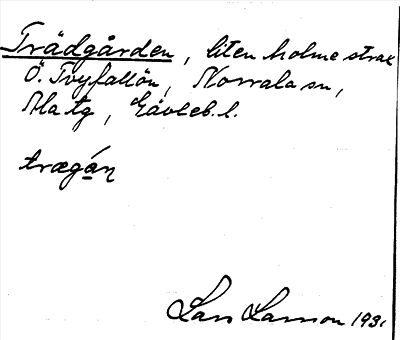 Trädgården, liten holme strax
Ö. Tvyfallön, Norrala sn,
Ala tg, Gävleb. l.
trægán
Lars Larsson 1931